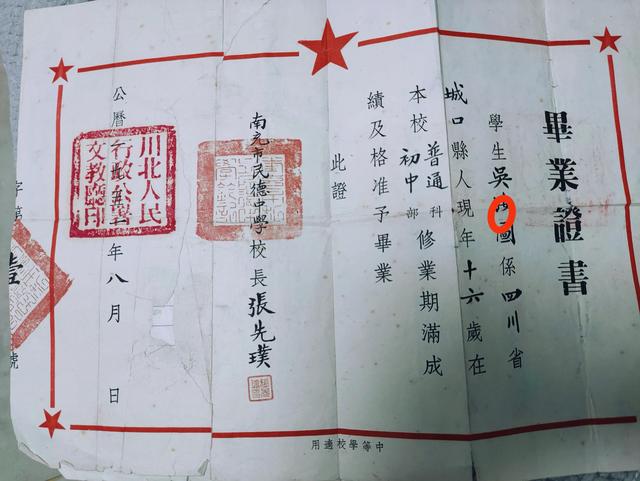 畢業證書
學生吳國係四川省
城口縣人現年十六歲在
本校普通科初中部修業期滿成
績及格准予畢業
此證
南充市民德中學校長張先璞
公曆一九五年八月 日
川北人民
行政公署
文教廳印
字第
壹
號
中等學校適用